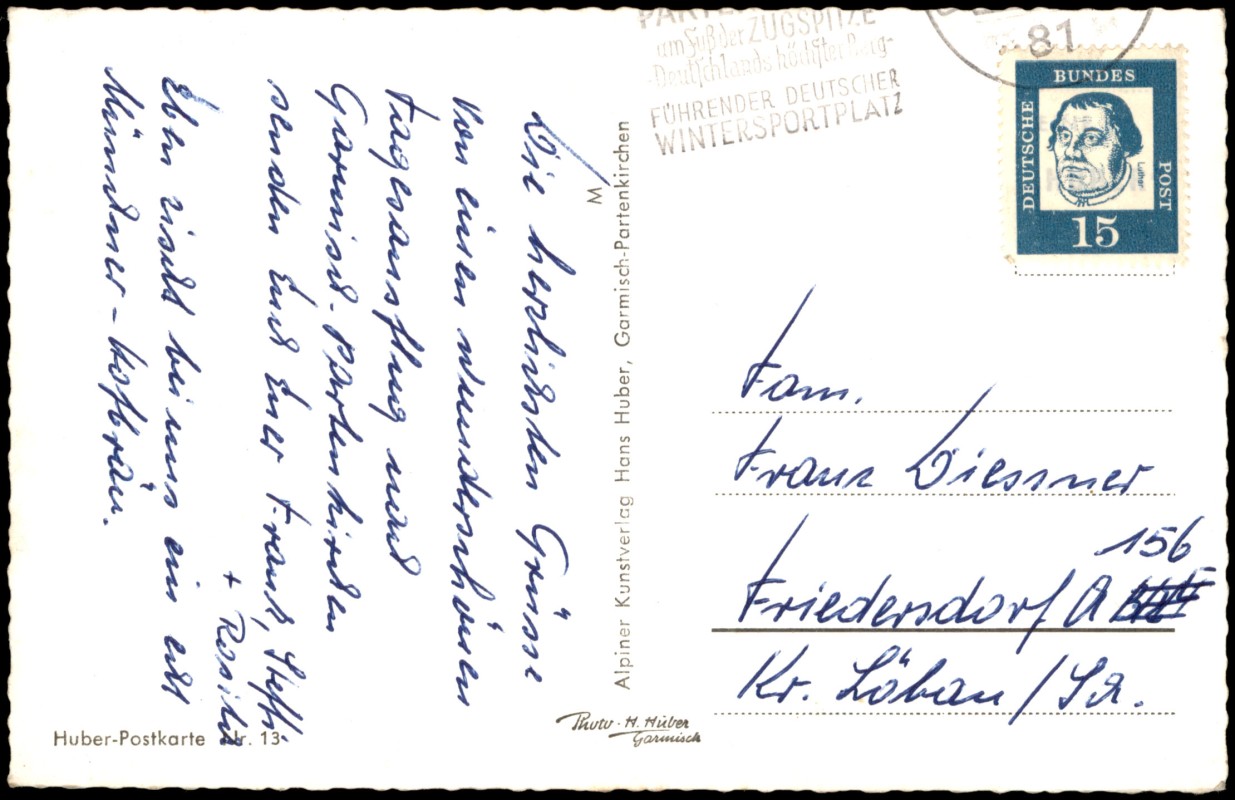 Die herzlichsten Grüsse
von einen wunderschönen
Tagesausflug nach
Garmisch-Partenkirchen
senden Euch Euer Frank, Steffi
+ Rosita
Eben zischt bei uns ein echt
Münchner-Hofbräu.
Huber-Postkarte Nr. 13
Alpiner Kunstverlag Hans Huber, Garmisch-Partenkirchen
M
Photo-H. Huber
Garmisch
am Fuß der ZUGSPITZE
Deutschlands höchster Berg-
FÜHRENDER DEUTSCHER
WINTERSPORTPLATZ
81
DEUTSCHE
BUNDES
POST
Luther
15
Fam.
Franz Diessner
Friedersdorf/A 156
Kr. Löbau/Sa.